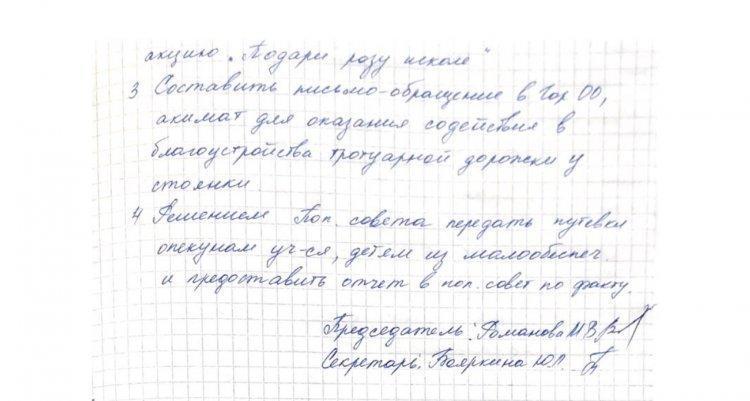 акцию „Подари розу школе"
3 Составить письмо-обращение в Гор ОО,
акимат для оказания содействия в
благоустройства тротуарной дорожки у
стоянки.
4 Решением Поп. совета передать путевки
опекунам уч-ся, детям из малообеспеч.
и предоставить отчет в поп. совет по факту.
Председатель: Романова М В
Секретарь: Бояркина Ю.Л.